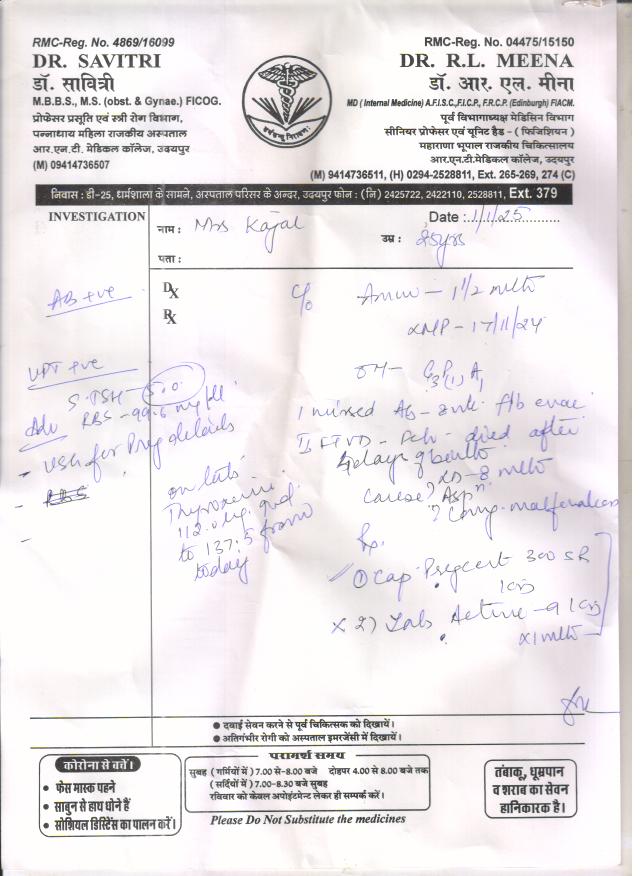 RMC-Reg. No. 4869/16099
DR. SAVITRI
डॉ. सावित्री
M.B.B.S., M.S. (obst. & Gynae.) FICOG.
प्रोफेसर प्रसूति एवं स्त्री रोग विभाग,
पन्नाधाय महिला राजकीय अस्पताल
आर.एन.टी. मेडिकल कॉलेज, उदयपुर
(M) 09414736507
RMC-Reg. No. 04475/15150
DR. R.L. MEENA
डॉ. आर. एल. मीना
MD ( Internal Medicine) A.F.I.S.C.,F.I.C.P., F.R.C.P. (Edinburgh) FIACM.
पूर्व विभागाध्यक्ष मेडिसिन विभाग
सीनियर प्रोफेसर एवं यूनिट हैड - ( फिजिशियन )
महाराणा भूपाल राजकीय चिकित्सालय
आर.एन.टी.मेडिकल कॉलेज, उदयपुर
(M) 9414736511, (H) 0294-2528811, Ext. 265-269, 274 (C)
निवास : डी-25, धर्मशाला के सामने, अस्पताल परिसर के अन्दर, उदयपुर फोन : (नि) 2425722, 2422110, 2528811, Ext. 379
INVESTIGATION
नाम : Mrs Kajal
Date : 1/1/25
उम्र : 25yrs
पता :
AB +ve
Dx
Rx
C/o Amen - 1 1/2 mth
LMP - 17/11/24
UPT +ve
S. TSH - 5.0
RBS - 99.6 mg/dl
Adv
- USG for Preg details
- RBS
-
OH - G3P(1)A1
I missed Ab - 2mth f/b evac
II FTVD - Fch - died after
4days of birth
LD - 8 mth
Cause? Aspn
? Cong. malformation
on tab
Thyroxine
112.0 mg and
to 137.5 from
today
Rx.
① Cap Pregcert 300 SR
2) Tab Active - 9
x1mth
● दवाई सेवन करने से पूर्व चिकित्सक को दिखायें।
● अतिगंभीर रोगी को अस्पताल इमरजेंसी में दिखायें।
कोरोना से बचें।
● फेस मास्क पहने
● साबुन से हाथ धोने हैं
● सोशियल डिस्टेंस का पालन करें।
परामर्श समय
सुबह ( गर्मियों में ) 7.00 से-8.00 बजे दोहपर 4.00 से 8.00 बजे तक
( सर्दियों में ) 7.00-8.30 बजे सुबह
रविवार को केवल अपोइंटमेन्ट लेकर ही सम्पर्क करें।
Please Do Not Substitute the medicines
तंबाकू, धूम्रपान
व शराब का सेवन
हानिकारक है।